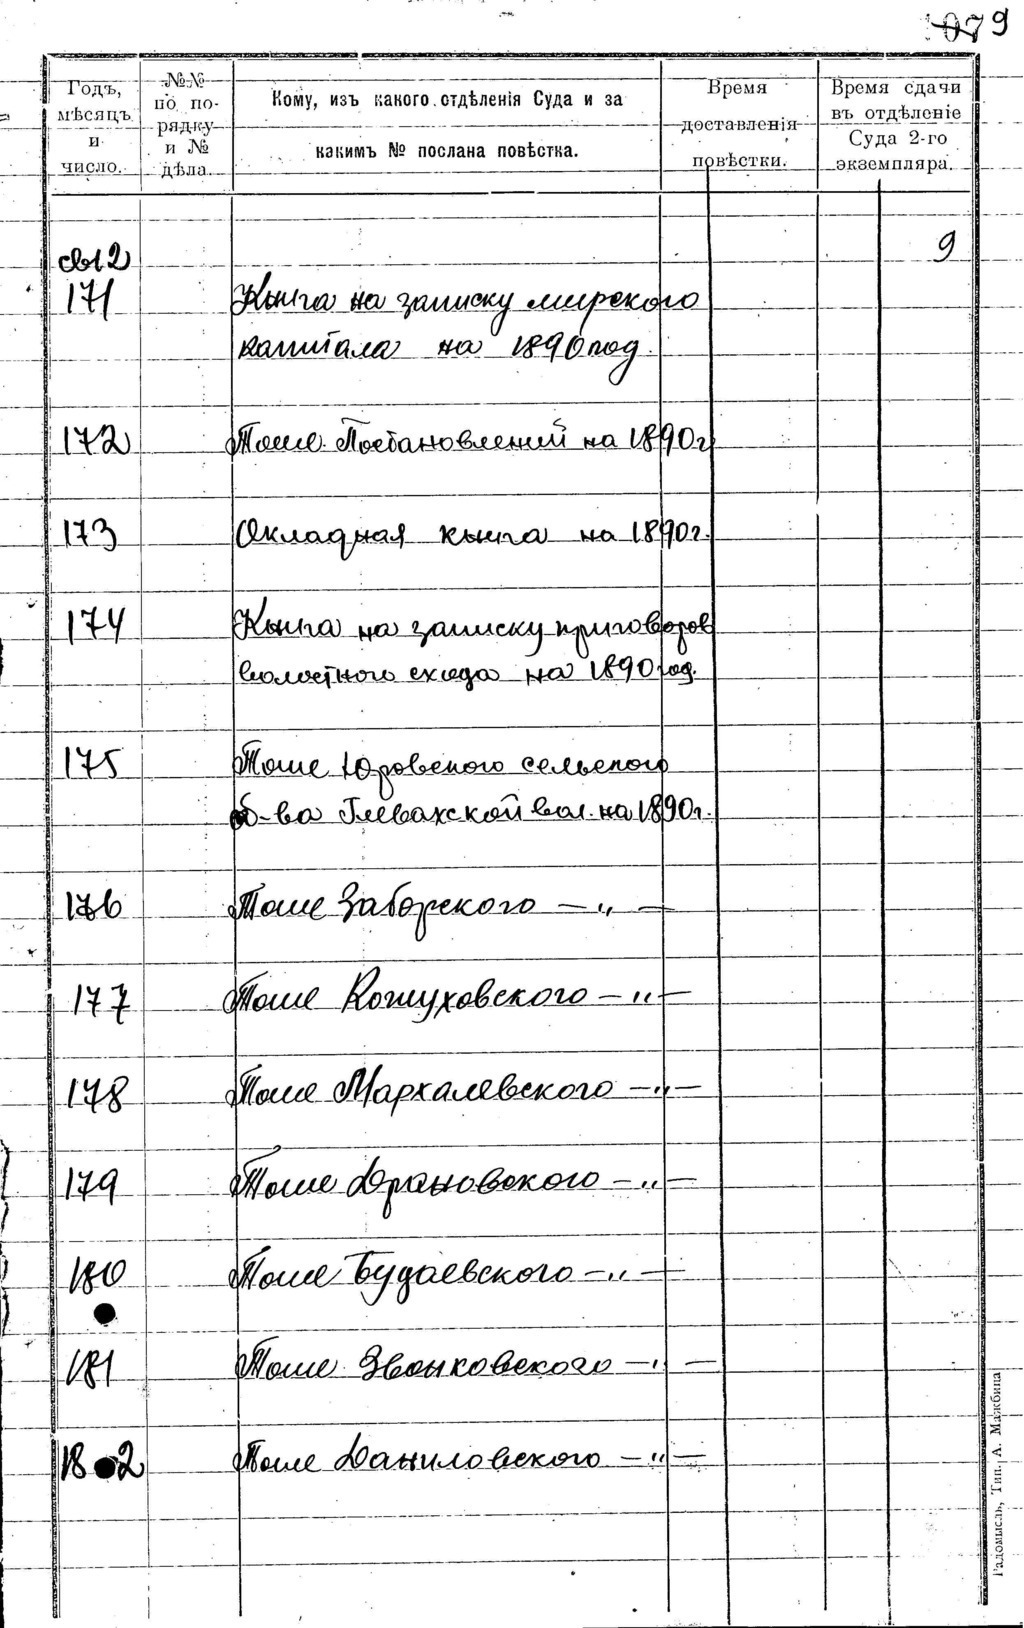 079
Годъ, мѣсяцъ и число.
№№ по по-рядку и № дѣла.
Кому, изъ какого отдѣленія Суда и за
какимъ № послана повѣстка.
Время доставленія повѣстки.
Время сдачи въ отдѣленіе Суда 2-го экземпляра.
св12
9
171 Книга на записку мирского
капитала на 1890 год
172 Тоже Постановлений на 1890г
173 Окладная книга на 1890г.
174 Книга на записку приговоров
волостного схода на 1890 год.
175 Тоже Юровского сельского
об-ва Глевахской вол. на 1890г.
176 Тоже Заборского — „ —
177 Тоже Кожуховского — „ —
178 Тоже Мархалевского — „ —
179 Тоже Крановского — „ —
180 Тоже Будаевского — „ —
181 Тоже Звонковского — „ —
182 Тоже Даниловского — „ —
Радомысль, Тип. А. Мажбица